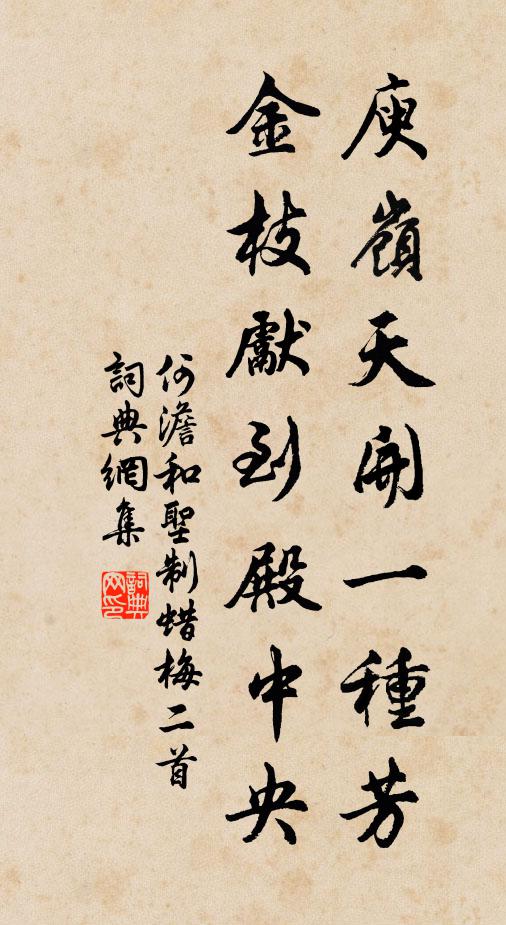 庾嶺天開一種芳
金枝獻到殿中央
何澹和聖制蜡梅二首
詞典網集
詞典网印